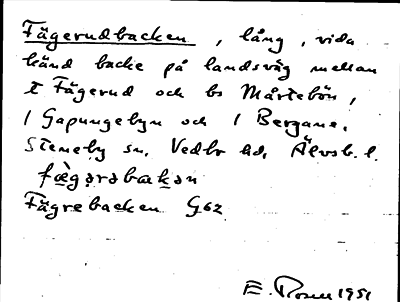 Fägerudbacken, lång, vida
känd backe på landsväg mellan
t Fägerud och bs Mårtebön,
l Gapungebyn och l Bergane.
Steneby sn. Vedbo hd. Älvsb. l.
fæ̀gərəbakən
Fägrebacken G62
E. Rosen 1951